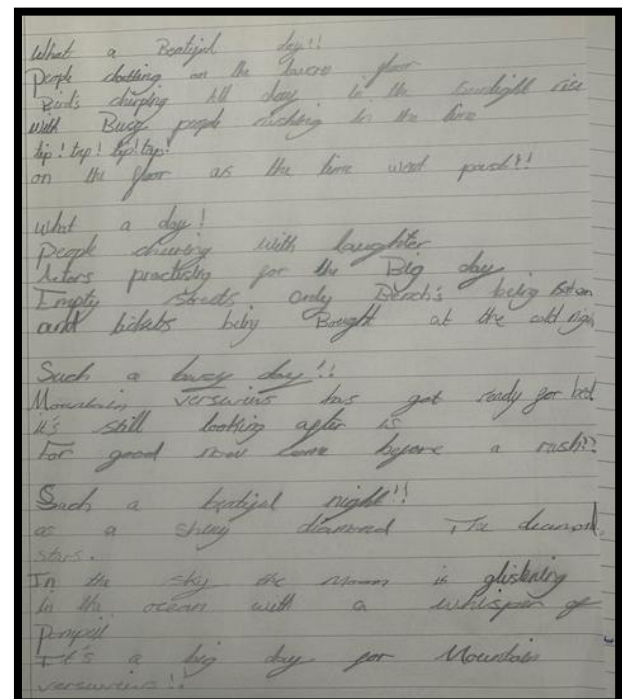 What a Beatiful day!!
People clothing on the tavern floor
Birds chirping all day in the sunlight rise
with Busy people rushing in the time
tip! tap! tip! tap!
on the floor as the time went past!!
What a day!
People cheering with laughter
Actors practising for the Big day
Empty streets only Bench's being sat on
and tickets being Bought at the cold nigh
Such a busy day!!
Mountain versuvius has got ready for bed
it's still looking after is
For good now come before a rush!!
Such a beatiful night!!
as a shiny diamond The diamond
stars.
In the sky the moon is glistening
in the ocean with a whisper of
Pompeii
It's a big day for Mountain
versuvius!!